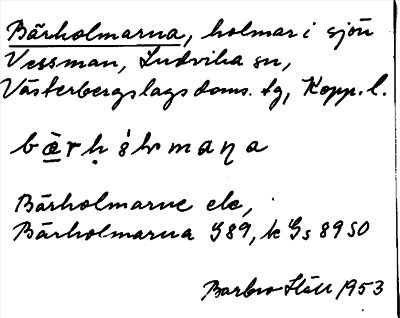 Bärholmarna, holmar i sjön
Vessman, Ludvika sn,
Västerbergslags doms. tg, Kopp. l.
Bärholmarne ek,
Bärholmarna G89, k Gs 8950
Barbro 1953